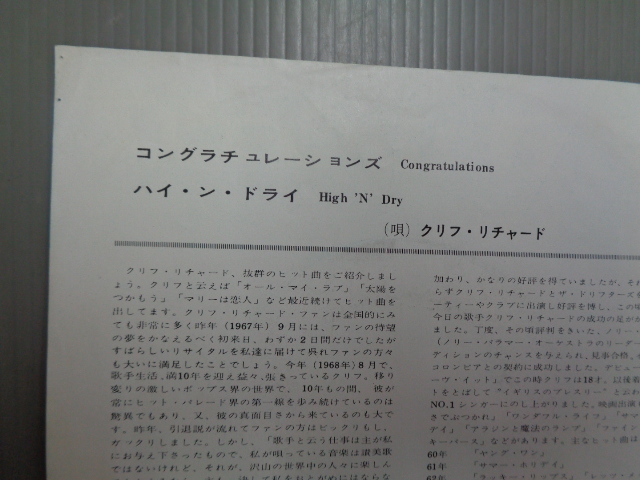 コングラチュレーションズ Congratulations
ハイ・ン・ドライ High 'N' Dry
(唄) クリフ・リチャード
クリフ・リチャード、抜群のヒット曲をご紹介しまし
ょう。クリフと云えば「オール・マイ・ラブ」「太陽を
つかもう」「マリーは恋人」など最近続けてヒット曲を
出してます。クリフ・リチャード・ファンは全国的にみ
ても非常に多く昨年（1967年）9月には、ファンの待望
の夢をかなえるべく初来日、わずか2日間だけでしたが
すばらしいリサイタルを私達に届けて呉れファンの方々
も大いに満足したことでしょう。今年（1968年）8月で、
歌手生活、満10年を迎え益々、張きっているクリフ。移り
変りの激しいポップス界の世界で、10年もの間、彼が
常にヒット・パレード界の第一線を歩み続けているのは
驚異でもあり、又、彼の真面目さから来ているのも大で
す。昨年、引退説が流れてファンの方はビックリもし、
ガックリしました。しかし、「歌手と云う仕事は主が私
にお与え下さったもので、私が唄っている音楽は讃美歌
ではないけれど、それが、沢山の世界中の人々に楽しん
加わり、かなりの好評を得ていましたが、それ
らずクリフ・リチャードとザ・ドリフターズを
ーティーやクラブに出演し好評を博し、この頃
今日の歌手クリフ・リチャードの成功の足がか
ました。丁度、その頃評判をきいた、ノリー・
（ノリー・パラマー・オーケストラのリーダー
ディションのチャンスを与えられ、見事合格、
コロンビアとの契約に成功しました。デビュー
ーヴ・イット」でこの時クリフは18才、以後着
トをとばして“イギリスのプレスリー”とよば
NO.1シンガーにのし上がりました。映画出演も
さでぶつかれ」「ワンダフル・ライフ」「サマー
デイ」「アラジンと魔法のランプ」「ファイン
キーパース」などがあります。主なヒット曲は
60年 「ヤング・ワン」
61年 「サマー・ホリデイ」
62年 「ラッキー・リップス」「レッツ・